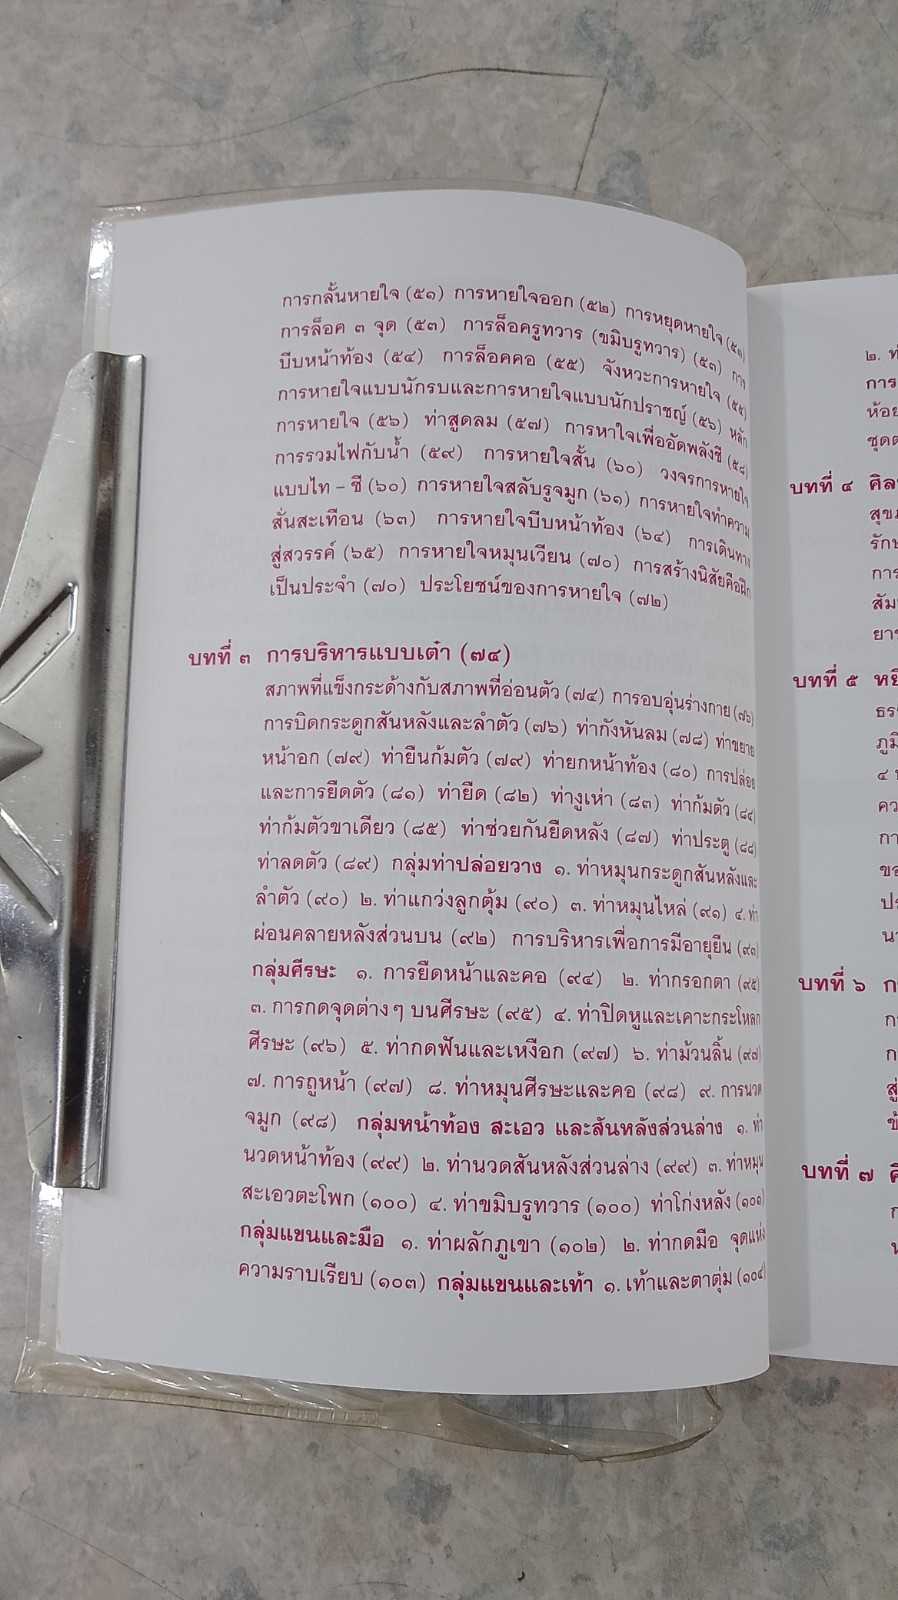 การกลั้นหายใจ (๕๑) การหายใจออก (๕๒) การหยุดหายใจ (๕๓)
การล็อค ๓ จุด (๕๓) การล็อครูทวาร (ขมิบรูทวาร) (๕๓) การ
บีบหน้าท้อง (๕๔) การล็อคคอ (๕๕) จังหวะการหายใจ (๕๕)
การหายใจแบบนักรบและการหายใจแบบนักปราชญ์ (๕๖) หลัก
การหายใจ (๕๖) ท่าสูดลม (๕๗) การหาใจเพื่ออัดพลังชี (๕๘)
การรวมไฟกับน้ำ (๕๙) การหายใจสั้น (๖๐) วงจรการหายใจ
แบบไท – ชี (๖๐) การหายใจสลับรูจมูก (๖๑) การหายใจทำความ
สั่นสะเทือน (๖๓) การหายใจบีบหน้าท้อง (๖๔) การเดินทาง
สู่สวรรค์ (๖๕) การหายใจหมุนเวียน (๗๐) การสร้างนิสัยคือฝึก
เป็นประจำ (๗๐) ประโยชน์ของการหายใจ (๗๒)
บทที่ ๓ การบริหารแบบเต๋า (๗๔)
สภาพที่แข็งกระด้างกับสภาพที่อ่อนตัว (๗๔) การอบอุ่นร่างกาย (๗๖)
การบิดกระดูกสันหลังและลำตัว (๗๖) ท่ากังหันลม (๗๘) ท่าขยาย
หน้าอก (๗๙) ท่ายืนก้มตัว (๗๙) ท่ายกหน้าท้อง (๘๐) การปล่อย
และการยืดตัว (๘๑) ท่ายืด (๘๒) ท่างูเห่า (๘๓) ท่าก้มตัว (๘๔)
ท่าก้มตัวขาเดียว (๘๕) ท่าช่วยกันยืดหลัง (๘๗) ท่าประตู (๘๘)
ท่าลดตัว (๘๙) กลุ่มท่าปล่อยวาง ๑. ท่าหมุนกระดูกสันหลังและ
ลำตัว (๙๐) ๒. ท่าแกว่งลูกตุ้ม (๙๐) ๓. ท่าหมุนไหล่ (๙๑) ๔. ท่า
ผ่อนคลายหลังส่วนบน (๙๒) การบริหารเพื่อการมีอายุยืน (๙๓)
กลุ่มศีรษะ ๑. การยืดหน้าและคอ (๙๔) ๒. ท่ากรอกตา (๙๕)
๓. การกดจุดต่างๆ บนศีรษะ (๙๕) ๔. ท่าปิดหูและเคาะกระโหลก
ศีรษะ (๙๖) ๕. ท่ากดฟันและเหงือก (๙๗) ๖. ท่าม้วนลิ้น (๙๗)
๗. การถูหน้า (๙๗) ๘. ท่าหมุนศีรษะและคอ (๙๘) ๙. การนวด
จมูก (๙๘) กลุ่มหน้าท้อง สะเอว และสันหลังส่วนล่าง ๑. ท่า
นวดหน้าท้อง (๙๙) ๒. ท่านวดสันหลังส่วนล่าง (๙๙) ๓. ท่าหมุน
สะเอวตะโพก (๑๐๐) ๔. ท่าขมิบรูทวาร (๑๐๐) ท่าโก่งหลัง (๑๐๑)
กลุ่มแขนและมือ ๑. ท่าผลักภูเขา (๑๐๒) ๒. ท่ากดมือ จุดแห่ง
ความราบเรียบ (๑๐๓) กลุ่มแขนและเท้า ๑. เท้าและตาตุ่ม (๑๐๔)
๒.
การ
บทที่ ๔
การ
บทที่ ๕
๔
บทที่ ๖
สู่
บทที่ ๗